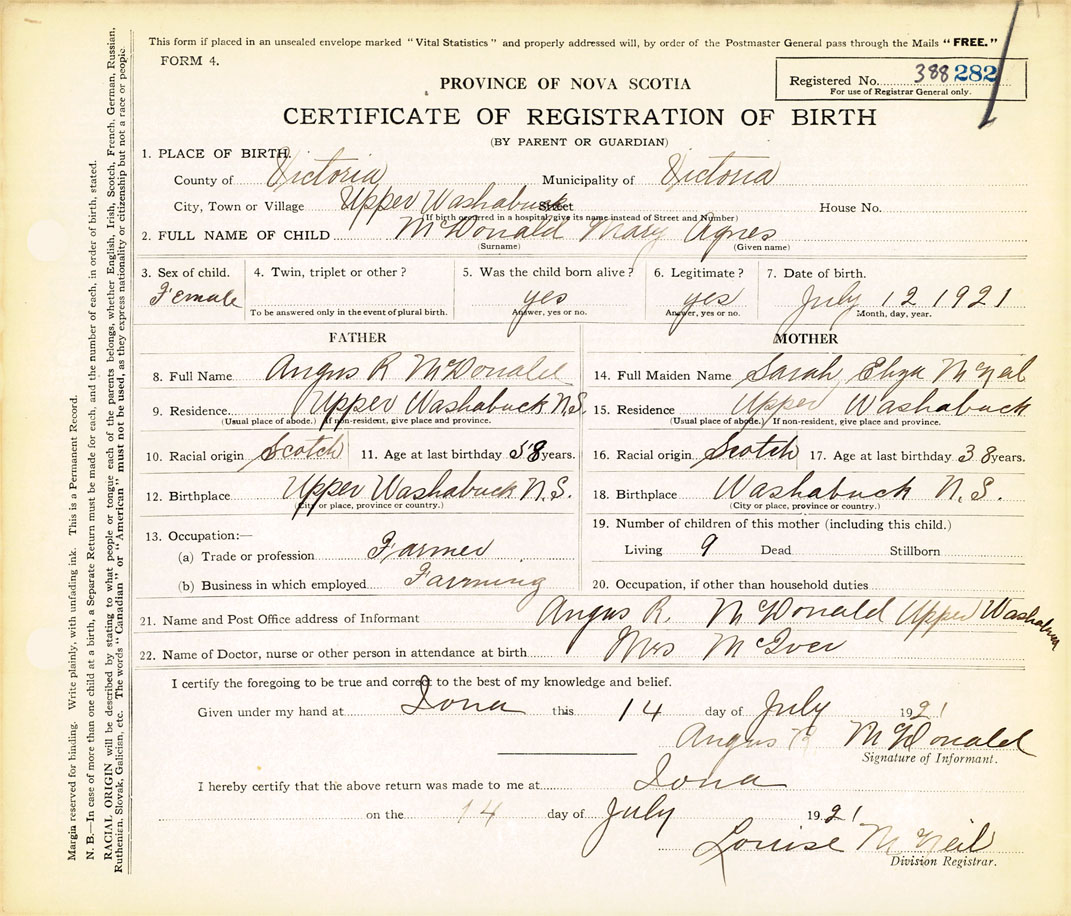 This form if placed in an unsealed envelope marked "Vital Statistics" and properly addressed will, by order of the Postmaster General pass through the Mails "FREE."
FORM 4.
Registered No. 388 282
For use of Registrar General only.
PROVINCE OF NOVA SCOTIA
CERTIFICATE OF REGISTRATION OF BIRTH
(BY PARENT OR GUARDIAN)
1. PLACE OF BIRTH.
County of Victoria Municipality of Victoria
City, Town or Village Upper Washabuck Street House No.
(If birth occurred in a hospital, give its name instead of Street and Number)
2. FULL NAME OF CHILD McDonald Mary Agnes
(Surname) (Given name)
3. Sex of child. 4. Twin, triplet or other? 5. Was the child born alive? 6. Legitimate? 7. Date of birth.
Female yes yes July 12 1921
To be answered only in the event of plural birth. Answer, yes or no. Answer, yes or no. Month, day, year.
FATHER MOTHER
8. Full Name Angus R McDonald 14. Full Maiden Name Sarah Eliza McNeil
9. Residence Upper Washabuck N.S. 15. Residence Upper Washabuck
(Usual place of abode.) If non-resident, give place and province. (Usual place of abode.) If non-resident, give place and province.
10. Racial origin Scotch 11. Age at last birthday 58 years. 16. Racial origin Scotch 17. Age at last birthday 38 years.
12. Birthplace Upper Washabuck N.S. 18. Birthplace Washabuck N.S.
(City or place, province or country.) (City or place, province or country.)
13. Occupation:— 19. Number of children of this mother (including this child.)
(a) Trade or profession Farmer Living 9 Dead Stillborn
(b) Business in which employed Farming 20. Occupation, if other than household duties
21. Name and Post Office address of Informant Angus R. McDonald Upper Washabuck
22. Name of Doctor, nurse or other person in attendance at birth Mrs McIver
I certify the foregoing to be true and correct to the best of my knowledge and belief.
Given under my hand at Iona this 14 day of July 1921
Angus R McDonald
Signature of Informant.
I hereby certify that the above return was made to me at Iona
on the 14 day of July 1921
Louise McNeil
Division Registrar.
Margin reserved for binding. Write plainly, with unfading ink. This is a Permanent Record.
N. B.—In case of more than one child at a birth, a Separate Return must be made for each, and the number of each, in order of birth, stated.
RACIAL ORIGIN will be described by stating to what people or tongue each of the parents belongs, whether English, Irish, Scotch, French, German, Russian,
Ruthenian, Slovak, Galician, etc. The words "Canadian" or "American" must not be used, as they express nationality or citizenship but not a race or people.